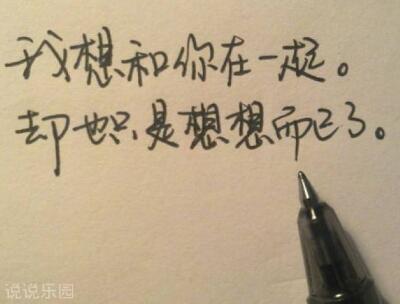 我想和你在一起。
却也只是想想而已了。
说说乐园